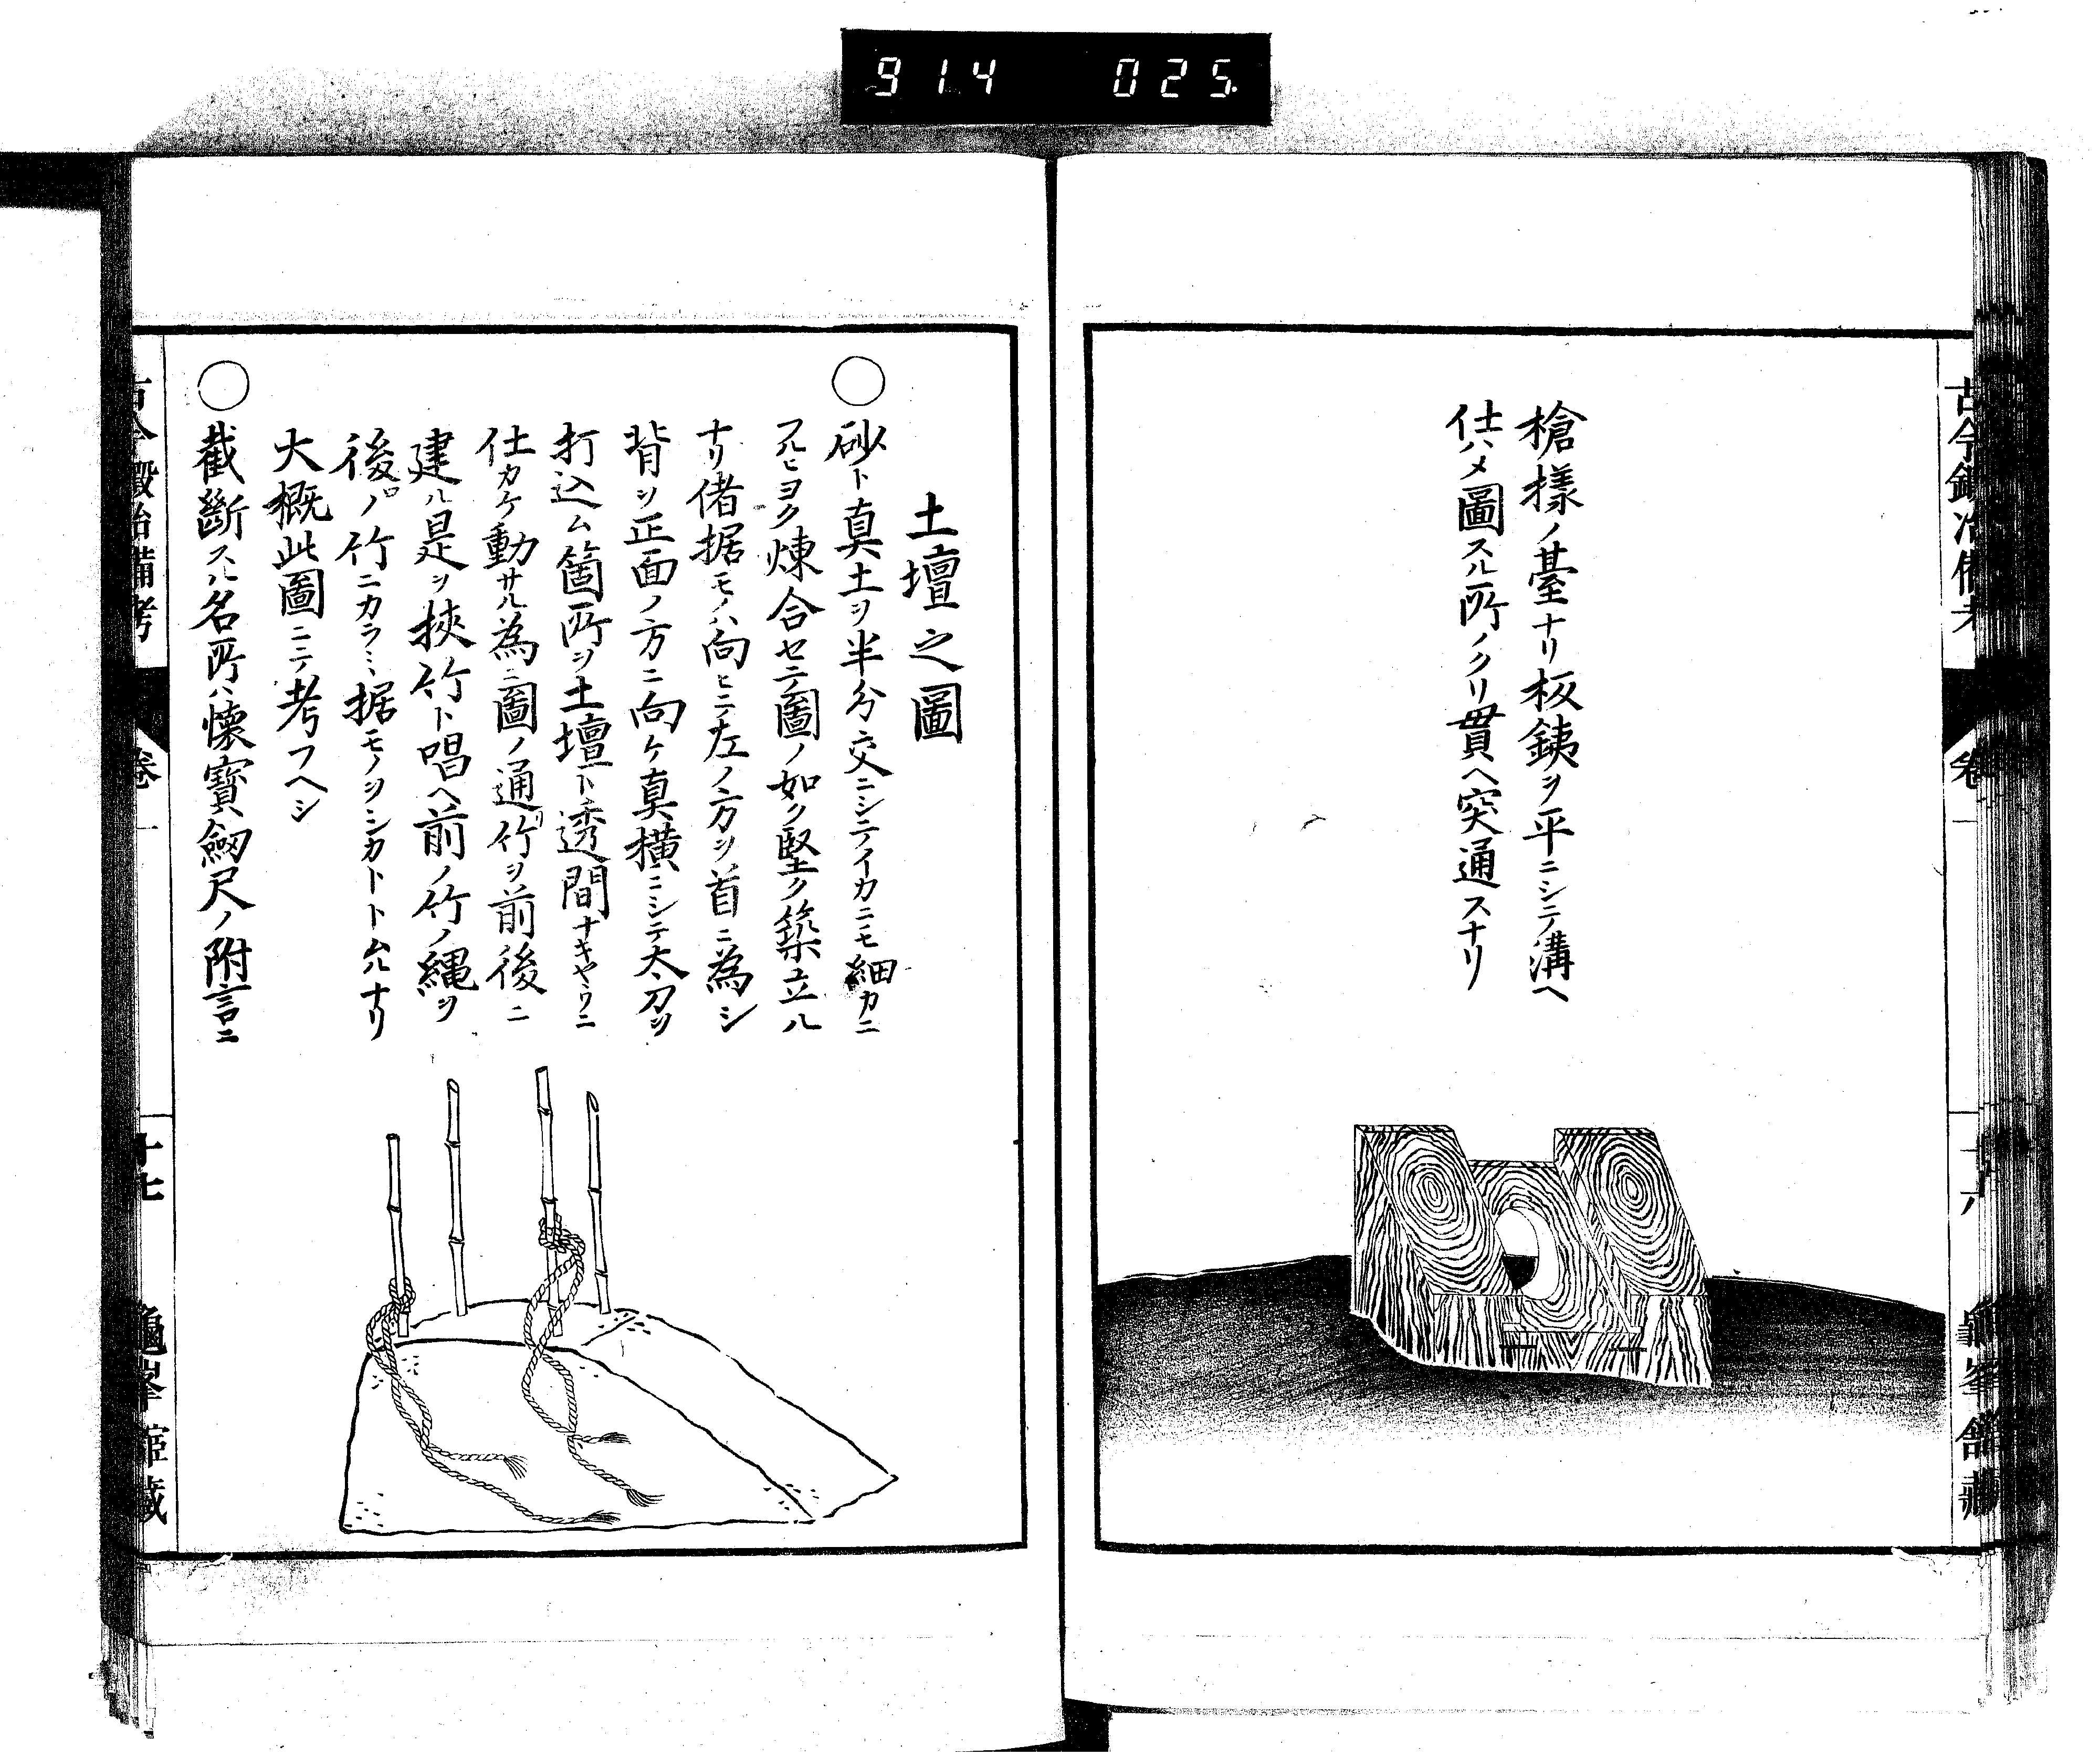 914 025
槍様ノ䑓ナリ板銕ヲ平ニシテ溝ヘ
仕ハメ圖スル所ノクリ貫ヘ突通スナリ
土壇之圖
○砂ト真土ヲ半分交ニシテイカニモ細カニ
フルヒヨク煉合セテ圖ノ如ク堅ク築立ル
ナリ偖据モノハ向ヒテ左ノ方ヲ首ニ為シ
背ヲ正面ノ方ニ向ケ真横ニシテ太刀ヲ
打込ム箇所ヲ土壇ト透間ナキヤウニ
仕カケ動サル為ニ圖ノ通リ竹ヲ前後ニ
建ル是ヲ挾竹ト唱ヘ前ノ竹ノ縄ヲ
後ロノ竹ニカラミ据モノヲシカト
大概此圖ニテ考フヘシ
○截斷スル名所ハ懐寳劔尺ノ附言ニ
古今鍛冶備考 卷一 十七 龜峯館藏